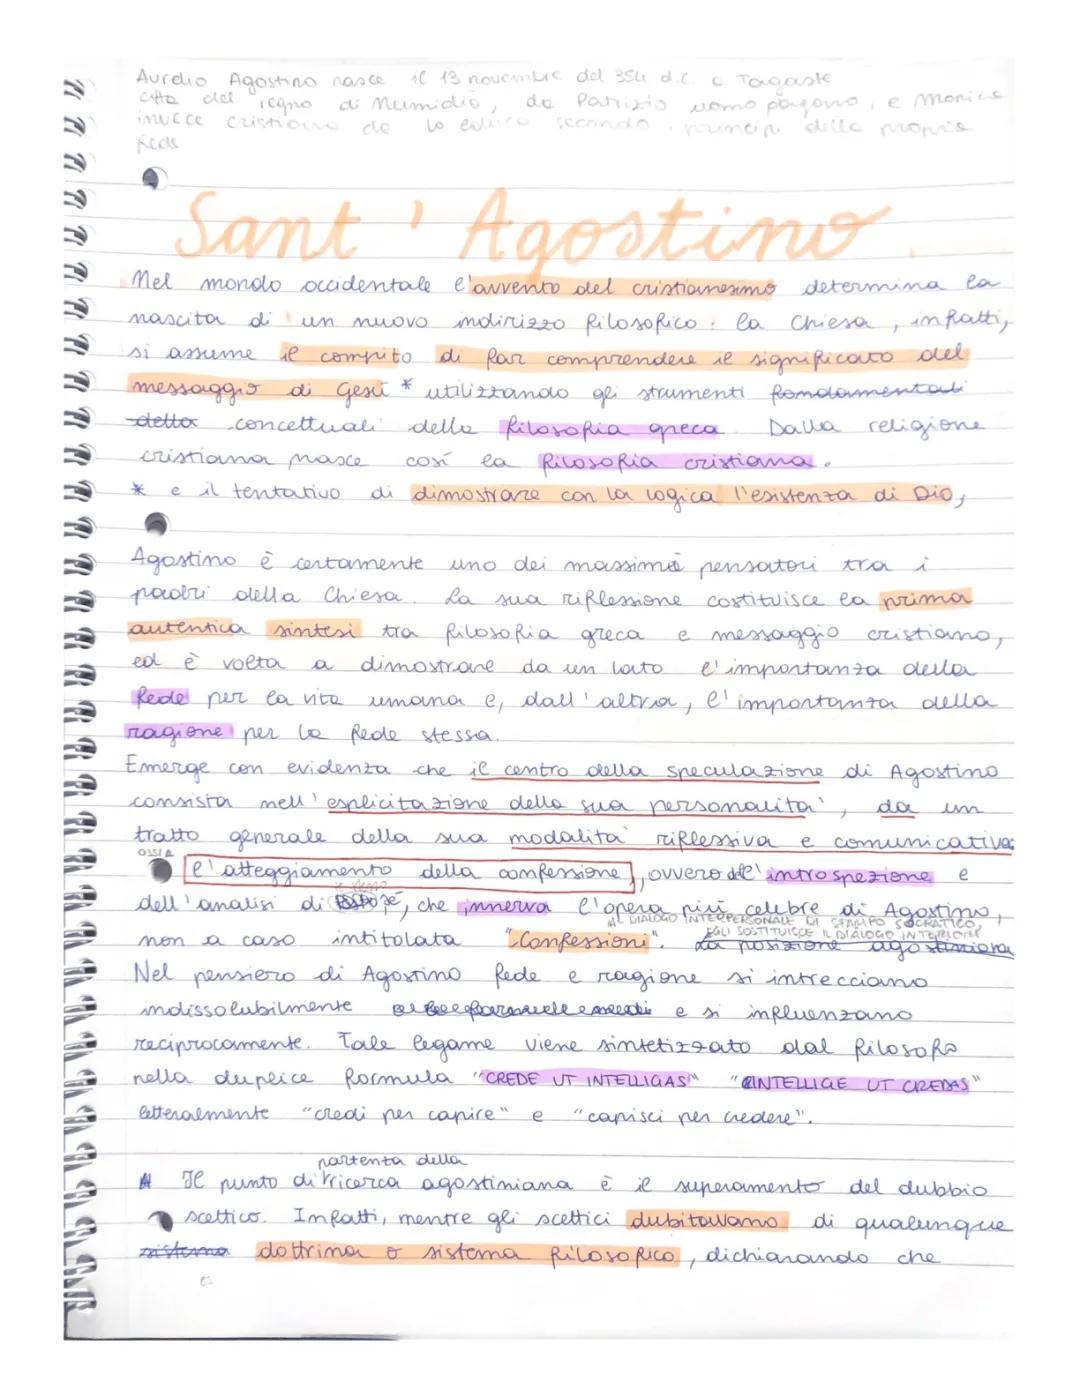 Aurelio Agostino nasce il 13 novembre del 354 d.C. a Tagaste
città del regno di Numidia, da Patrizio uomo pagano, e Monica
invece cristiana che lo educa secondo i principi della propria
fede
Sant'Agostino
Nel mondo occidentale l'avvento del cristianesimo determina la
nascita di un nuovo indirizzo filosofico: la Chiesa, infatti,
si assume il compito di far comprendere il significato del
messaggio di Gesù * utilizzando gli strumenti fondamentali
della concettuali della filosofia greca. Dalla religione
cristiana nasce così la filosofia cristiana.
* e il tentativo di dimostrare con la logica l'esistenza di Dio,
Agostino è certamente uno dei massimi pensatori tra i
padri della Chiesa. La sua riflessione costituisce la prima
autentica sintesi tra filosofia greca e messaggio cristiano,
ed è volta a dimostrare da un lato l'importanza della
fede per la vita umana e, dall'altra, l'importanza della
ragione per la fede stessa.
Emerge con evidenza che il centro della speculazione di Agostino
consista nell'esplicitazione della sua personalità, da un
tratto generale della sua modalità riflessiva e comunicativa:
OSSIA
l'atteggiamento della confessione, ovvero dell'introspezione e
dell'analisi di sé, che innerva l'opera più celebre di Agostino,
AL DIALOGO INTERPERSONALE DI STAMPO SOCRATICO,
EGLI SOSTITUISCE IL DIALOGO INTERIORE
non a caso intitolata "Confessioni". La posizione agostiniana
Nel pensiero di Agostino fede e ragione si intrecciano
indissolubilmente e si influenzano
reciprocamente. Tale legame viene sintetizzato dal filosofo
nella duplice formula "CREDE UT INTELLIGAS" "INTELLIGE UT CREDAS"
letteralmente "credi per capire" e "capisci per credere".
partenza della
Il punto di ricerca agostiniana è il superamento del dubbio
scettico. Infatti, mentre gli scettici dubitavano di qualunque
sistema dottrina o sistema filosofico, dichiarando che